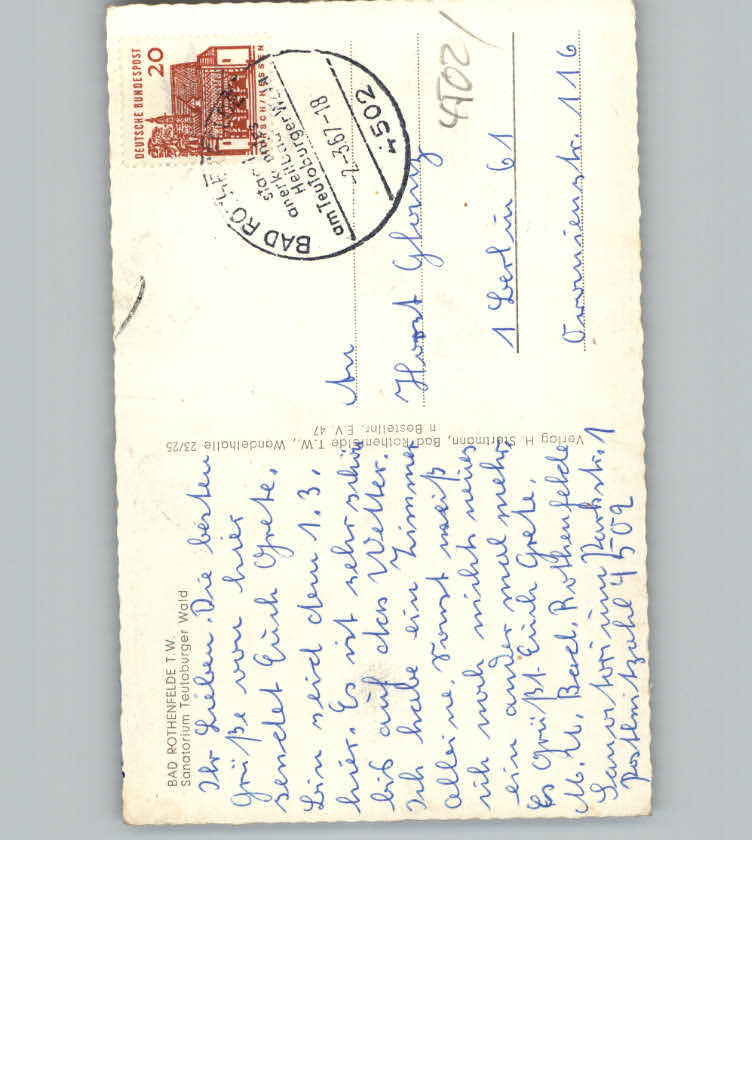 BAD ROTHENFELDE T.W.
Sanatorium Teutoburger Wald
Ihr Lieben. Die besten
Grüße von hier
sendet Euch Grete.
Bin seid dem 1.3.
hier. Es ist sehr schön
bis auf das Wetter.
Ich habe ein Zimmer
alleine. sonst weiß
ich noch nichts neues
ein ander mal mehr.
Es Grüßt Euch Grete.
Bad. Rothenfelde
Sanatorium Parkstr. 1
Postleitzahl 4502
Verlag H. Stertmann, Bad Rothenfelde T.W., Wandelhalle 23/25
n Bestellnr. E.V. 47
DEUTSCHE BUNDESPOST
20
LORSCH/HESSEN
am Teutoburger Wald
-2.-3.67-18
4502
4502
An
Horst
1 Berlin 61
Oranienstr. 116